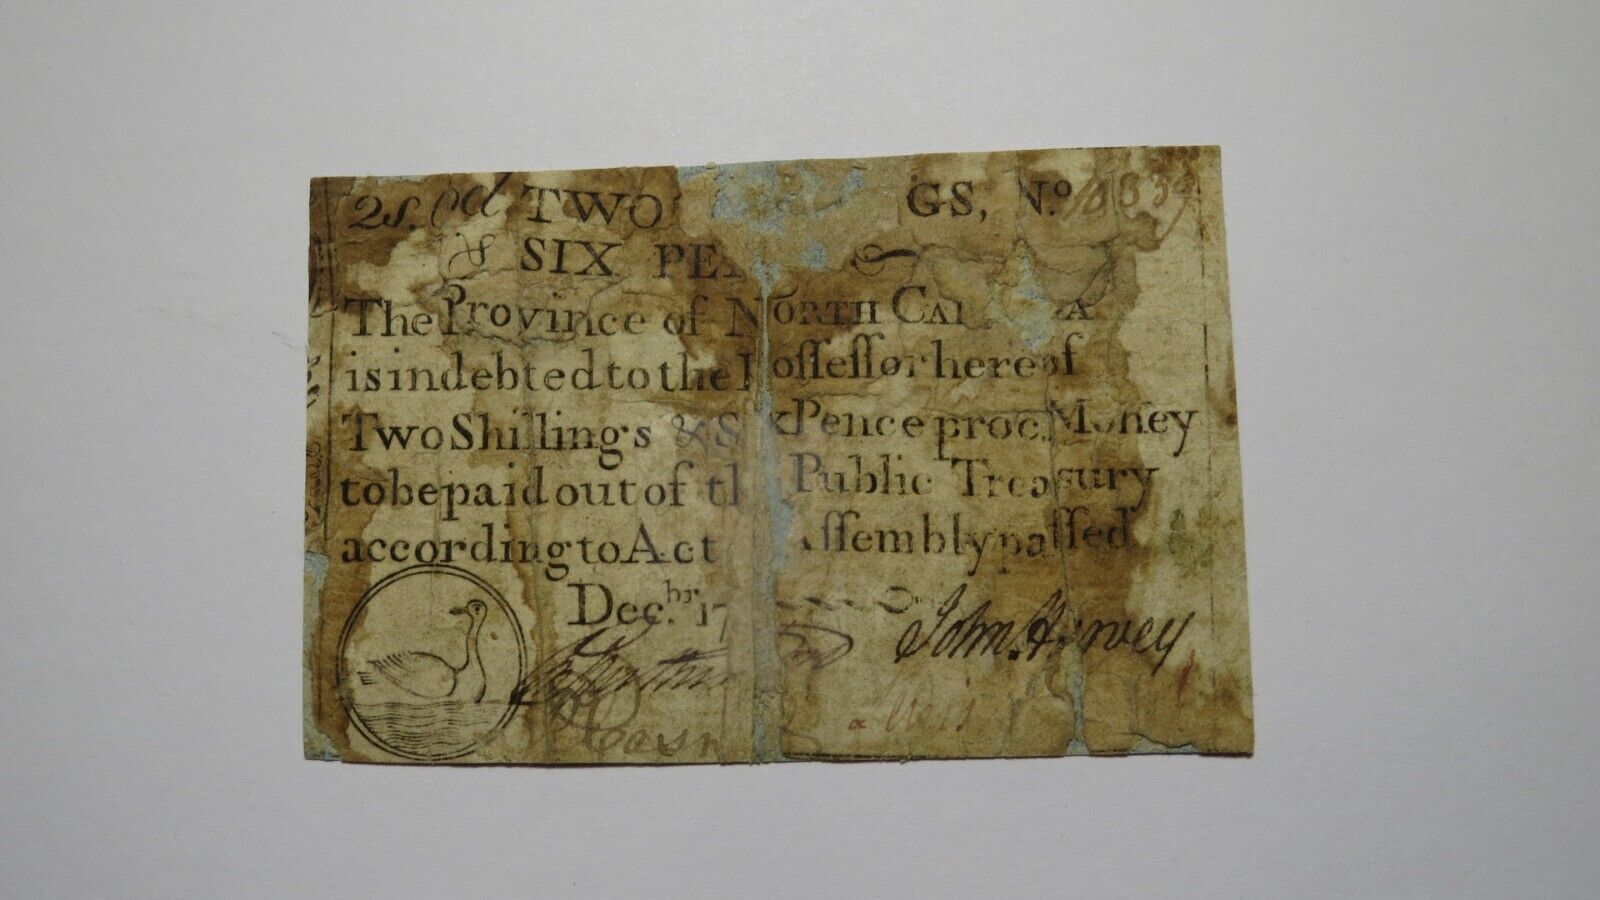 2s. 6d TWO GS, No.
& SIX PE
The Province of NORTH CA A
is indebted to the Poſſeſſor hereof
Two Shillings & Six Pence proc. Money
to be paid out of th Public Treasury
according to Act Aſſembly paſſed
Decbr. 17
John. Harvey